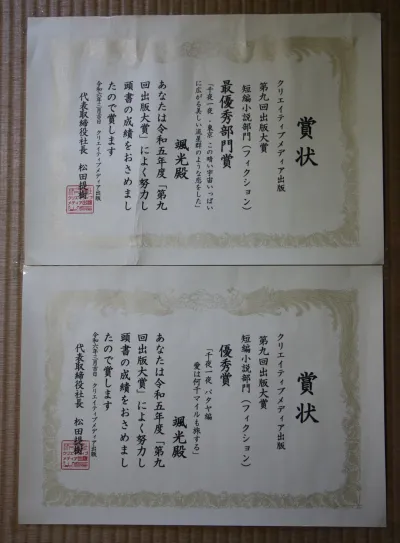 賞状
クリエイティブメディア出版
第九回出版大賞
短編小説部門(フィクション)
最優秀部門賞
「千夜一夜 東京 この暗い宇宙いっぱい
に広がる美しい流星群のような恋をした」
颯光殿
あなたは令和五年度「第九
回出版大賞」によく努力し
頭書の成績をおさめまし
たので賞します
クリエイティブメディア出版
代表取締役社長 松田提樹
賞状
クリエイティブメディア出版
第九回出版大賞
短編小説部門(フィクション)
優秀賞
「千夜一夜 パタヤ編
愛は何千マイルも旅する」
颯光殿
あなたは令和五年度「第九
回出版大賞」によく努力し
頭書の成績をおさめまし
たので賞します
クリエイティブメディア出版
代表取締役社長 松田提樹